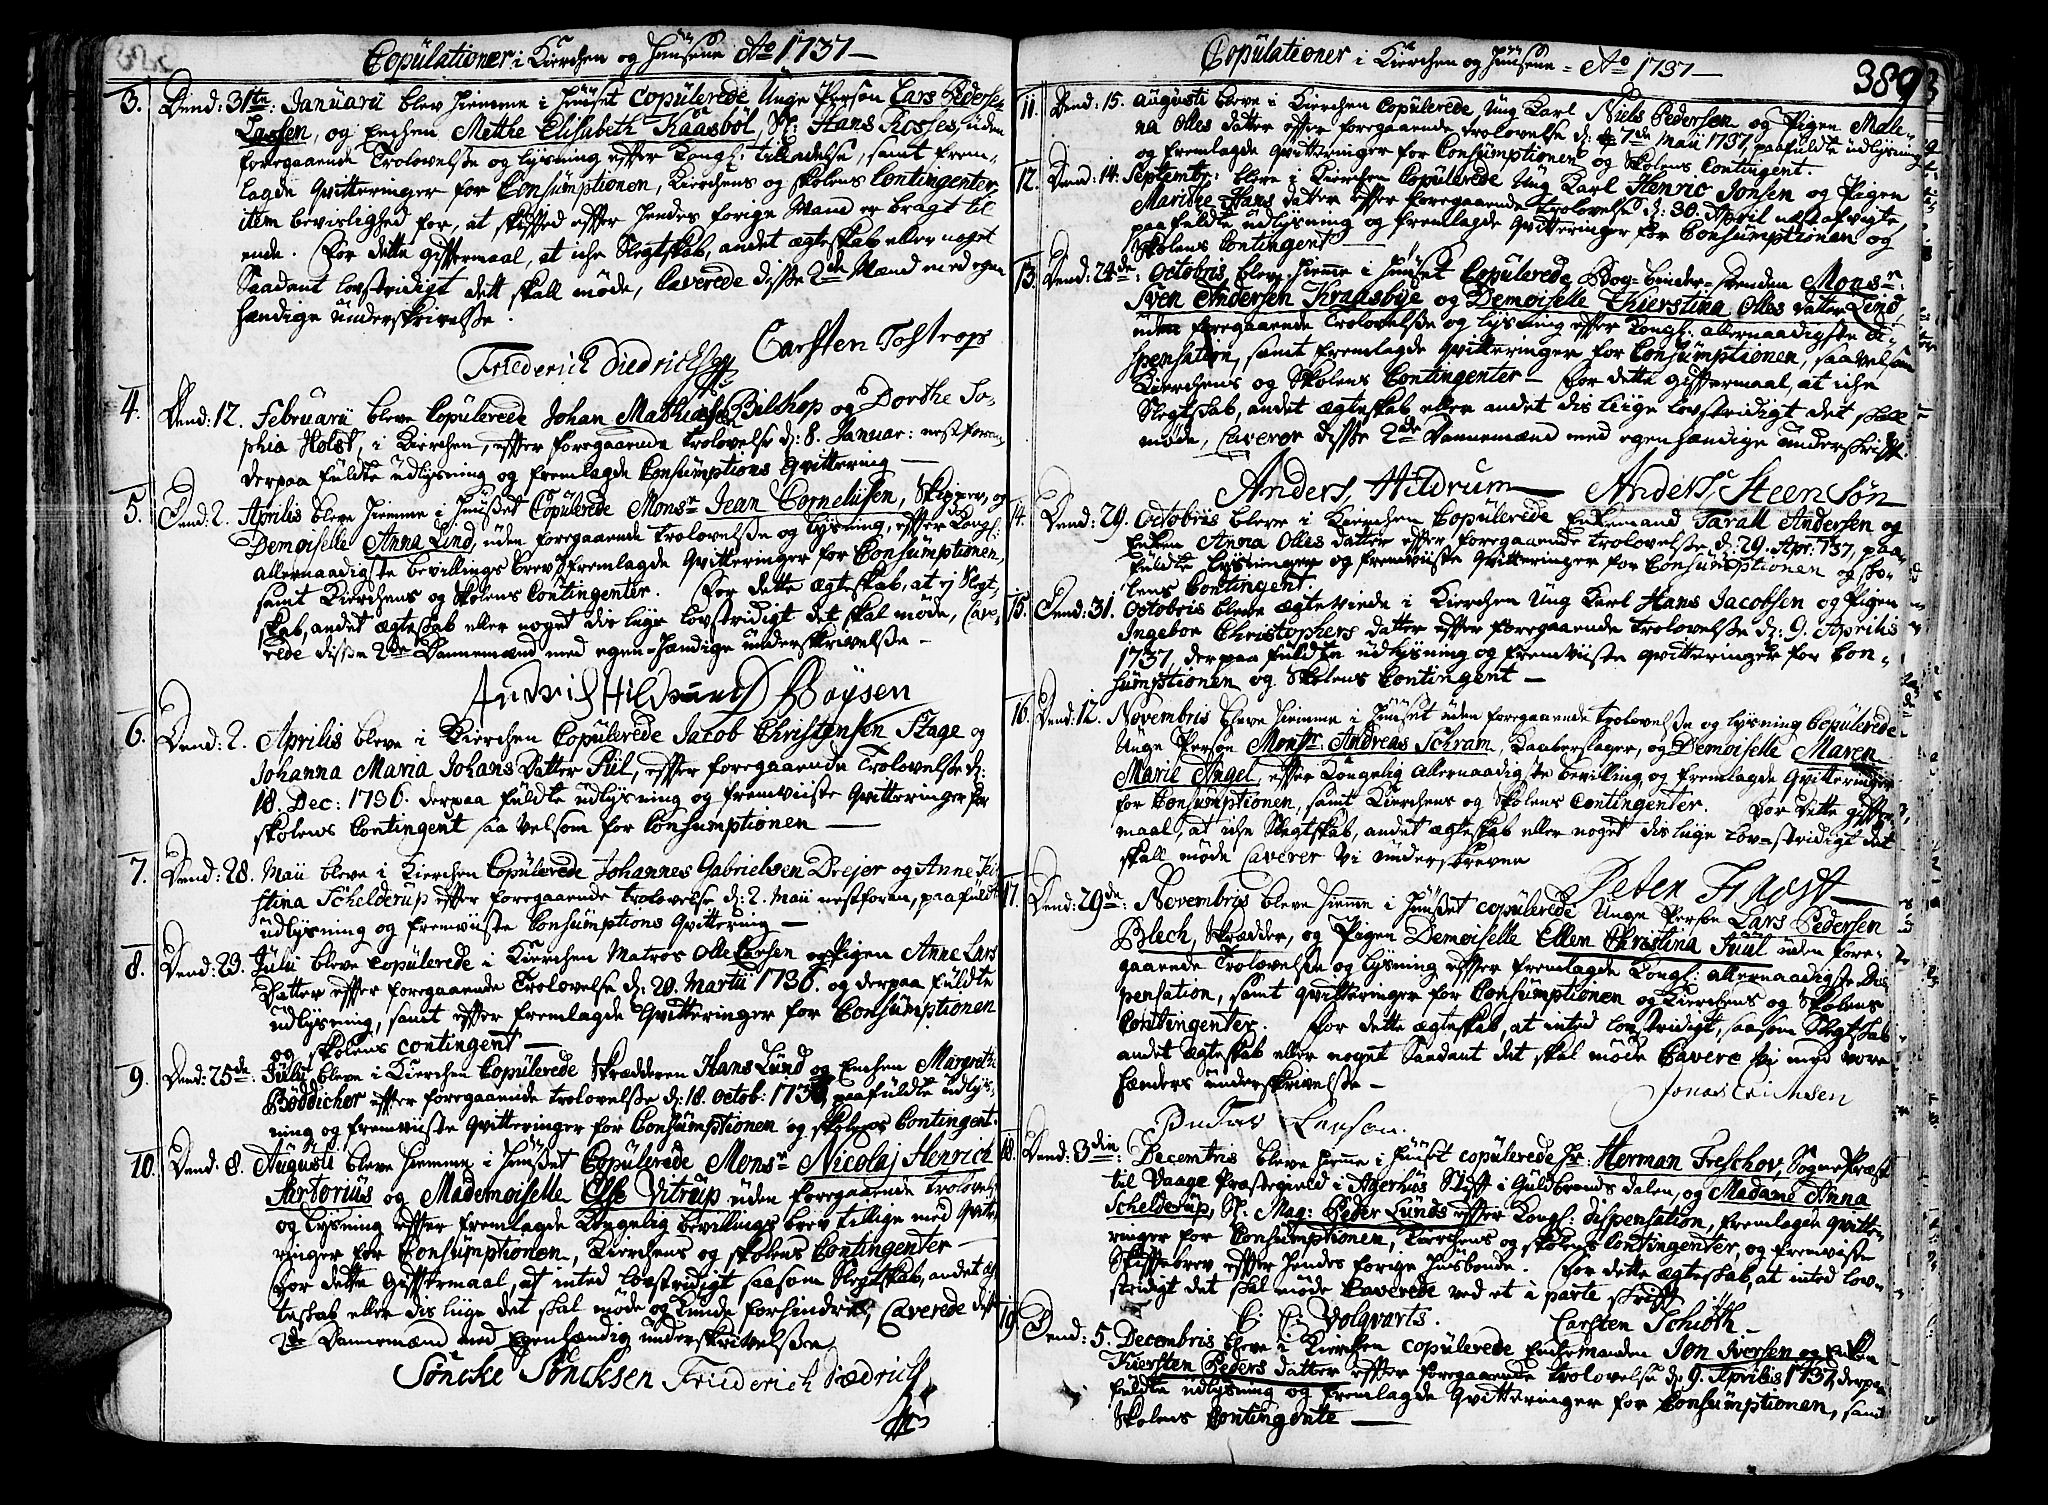 Copulationer i Kierchen og Huusene Ao 1737
3. Dend: 31te: Januarii blev hiemme i Huuset Copulerede Unge Person Lars Pedersen
Lassen, og Enchen Metthe Elisabeth Kaasbøl, Sl: Hans Rosses, uden
foregaaende Trolovelse og lysning efter Kongl: tilladelse, samt frem-
lagde Qvitteringer for Consumptionen, Kierchens og Skolens Contingenter,
item bevirlighed for, at skifted efter hendes forige Mand er bragt til
ende. For dette giftermaal, at iche Slegtskab, andet ægteskab eller noget
Saadant lovstridigt dett skall møde, Caverede disse 2de Mænd med egen
hændige underskrivelse.
Friederich Diedrichsen Carsten Tostrop
4. Dend: 12. Februarii bleve Copulerede Johan Mathiasen Bilskop og Dorthe So-
phia Holst, i Kierchen, efter foregaaende Trolovelse d: 8. Januar: nestforen
derpaa fuldte udlysning og fremlagde Consumptions Qvittering
5. Dend: 2. Aprilis bleve hiemme i Huuset Copulerede Monsr Jean Cornelüsen, Skipper, og
Demoiselle Anna Lind, uden foregaaende trolovelse og lysning, efter Kongl:
allernaadigste bevillings brev, fremlagde Qvitteringer for Consumptionen,
samt Kierchens og Skolens Contingenter. For dette ægteskab, at ej Slegt-
skab, andet ægteskab eller noget dislige lovstridigt det skal møde, Cave-
rede disse 2de Dannemænd med egen-hændige underskrivelse
Boysen
6. Dend: 2. Aprilis bleve i Kierchen Copulerede Jacob Christensen Stage og
Johanna Maria Johans Datter Fiil, efter foregaaende Trolovelse d:
18. Dec: 1736. derpaa fuldte udlysning og fremviiste Qvitteringer for
Skolens Contingent saavelsom for Consumptionen
7. Dend: 28. Maii bleve i Kierchen Copulerede Johannes Gabrielsen Drejer og Anne Ki-
stina Schelderup efter foregaaende trolovelse d: 2. Maii nestforen, paafuldt
udlysning og fremviiste Consumptions Qvittering
8. Dend: 23. Julii bleve Copulerede i Kierchen Matros Olle Larsen og Pigen Anne Lars
Datter efter foregaaende Trolovelse d: 20. Martii 1736. og derpaa fuldte
udlysning, samt efter fremlagde Qvitteringer for Consumptionen
og Skolens Contingent
9. Dend: 25de Julii bleve i Kierchen Copulerede Skrædderen Hans Lund og Enchen Margrethe
Böddicher efter foregaaende trolovelse d: 18. Octob: 1736, paafuldte udlys-
ning og fremviiste Qvitteringer for Consumptionen og Skolens Contingent.
10. Dend: 8. Augusti bleve hiemme i Huuset Copulerede Monsr Nicolaj Henrich
Sartorius og Mademoiselle Else Vitrup uden foregaaende trolovelse
og lysning efter fremlagde Kongelig bevillings brev tillige med Qvitte-
ringer for Consumptionen, Kierchens og Skolens Contingenter
For dette giftermaal, at inted lovstridigt saasom Slegtskab, andet æg-
teskab eller dis liige det skal møde og kunde forhindre, Caverede disse
2de Dannemænd med Egenhændig underskrivelse
Söncke Söncksen Friederich Diedrich
Copulationer i Kierchen og Huusene Ao 1737
389
11. Dend: 15. Augusti bleve i Kierchen Copulerede, Ung Karl Niels Pedersen og Pigen Male-
na Olles datter efter foregaaende trolovelse d: 7de Maii 1737, paafuldte udlysning
og fremlagde Qvitteringer for Consumptionen og Skolens Contingent.
12. Dend: 14. Septembr: bleve i Kierchen Copulerede Ung Karl Henric Jonsen og Pigen
Marithe Hans datter efter foregaaende trolovelse d: 30. April næst afvigte,
paafuldte udlysning og fremlagde Qvitteringer for Consumptionen og
Skolens Contingent
13. Dend: 24de: Octobris bleve hiemme i Huuset Copulerede Bog-binder-Svenden Monsr:
Sven Andersen Kraasbye og Demoiselle Kierstina Olles datter Lind,
uden foregaaende Trolovelse og lysning efter Kongl: allernaadigste di-
spensation, samt fremlagde Qvitteringer for Consumptionen, saavelsom
Kierchens og Skolens Contingenter. For dette giftermaal, at iche
Slegtskab, andet ægteskab eller andet dis liige lovstridigt det skall
møde, Caverer disse 2de Dannemænd med egenhændige underskrift.
Anders Hildrum Anders Steensøn
14. Dend: 29. Octobris bleve i Kierchen Copulerede Enkemand Taralt Andersen og
Enken Anna Olles datter efter foregaaende trolovelse d: 29. Apr: 737, paa-
fuldte lysninger og fremviiste Qvitteringer for Consumptionen og sko-
lens Contingent.
15. Dend: 31. Octobris bleve ægteviede i Kierchen Ung Karl Hans Jacobsen og Pigen
Ingebor Christophers datter efter foregaaende trolovelse d: 9. Aprilis
1737, derpaa fuldte udlysning og fremviiste qvitteringer for Con-
sumptionen og Skolens Contingent
16. Dend: 12. Novembris bleve hiemme i Huuset uden foregaaende trolovelse og lysning Copulerede
Unge Person Monsr: Andreas Schram, Kaaberslager, og Demoiselle Maren
Marie Angel, efter Kongelig allernaadigste bevilling og fremlagde Qvitteringer
for Consumptionen, samt Kierchens og Skolens Contingenter. For dette gifter-
maal, at iche Slegtskab, andet ægteskab eller noget dis liige lov-stridigt det
skall møde Caverer vi underskrevne
Peter
17. Dend: 29de: Novembris bleve hiemme i Huuset Copulerede Unge Person Lars Pedersen
Blech, Skrædder, og Pigen Demoiselle Ellen Christina Juul uden fore-
gaaende Trolovelse og lysning efter fremlagde Kongl: allernaadigste Dis-
pensation, samt qvitteringer for Consumptionen og Kierchens og Skolens
Contingenter. For dette ægteskab, at inted lovstridigt, saasom Slegtskab
andet ægteskab eller noget Saadant det skal møde Cavere vi med vore
hænders underskrivelse
Jonas Erichsen
18. Dend: 3die Decembris bleve hiemme i Huuset copulerede Hr: Herman Treschov, Sogne Præst
til Vaage Præstegield i Agerhus Stift i Guldbrands dalen, og Madame Anna
Schelderup, Sl: Mag: Peder Lunds efter Kongl: dispensation, fremlagde qvitte-
ringer for Consumptionen, Kierchens og Skolens Contingenter, og fremviiste
Skiftebrev efter hendes forige Huusbonde. For dette ægteskab, at inted lov-
stridigt det skal møde Caverede ved et à parte skrift
Volqvarts. Carsten Schiøth
19. Dend: 5. Decembris bleve i Kierchen copulerede Enchemanden Jon Iversen og Enken
Kiersten Peders datter efter foregaaende trolovelse d: 9. Aprilis 1737, derpaa
fuldte udlysning og fremlagde Qvitteringer for Consumptionen, samt
Skolens Contingente